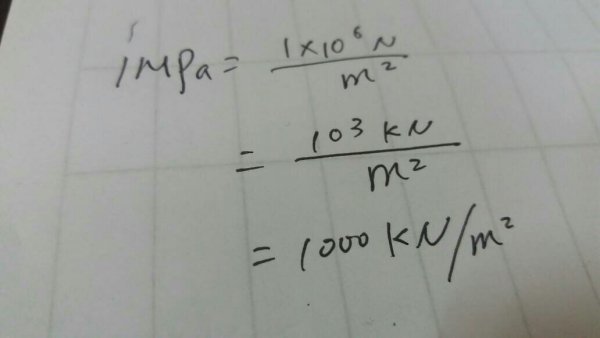 1MPa = 1×10⁶ N / m²
= 10³ KN / m²
= 1000 KN/m²